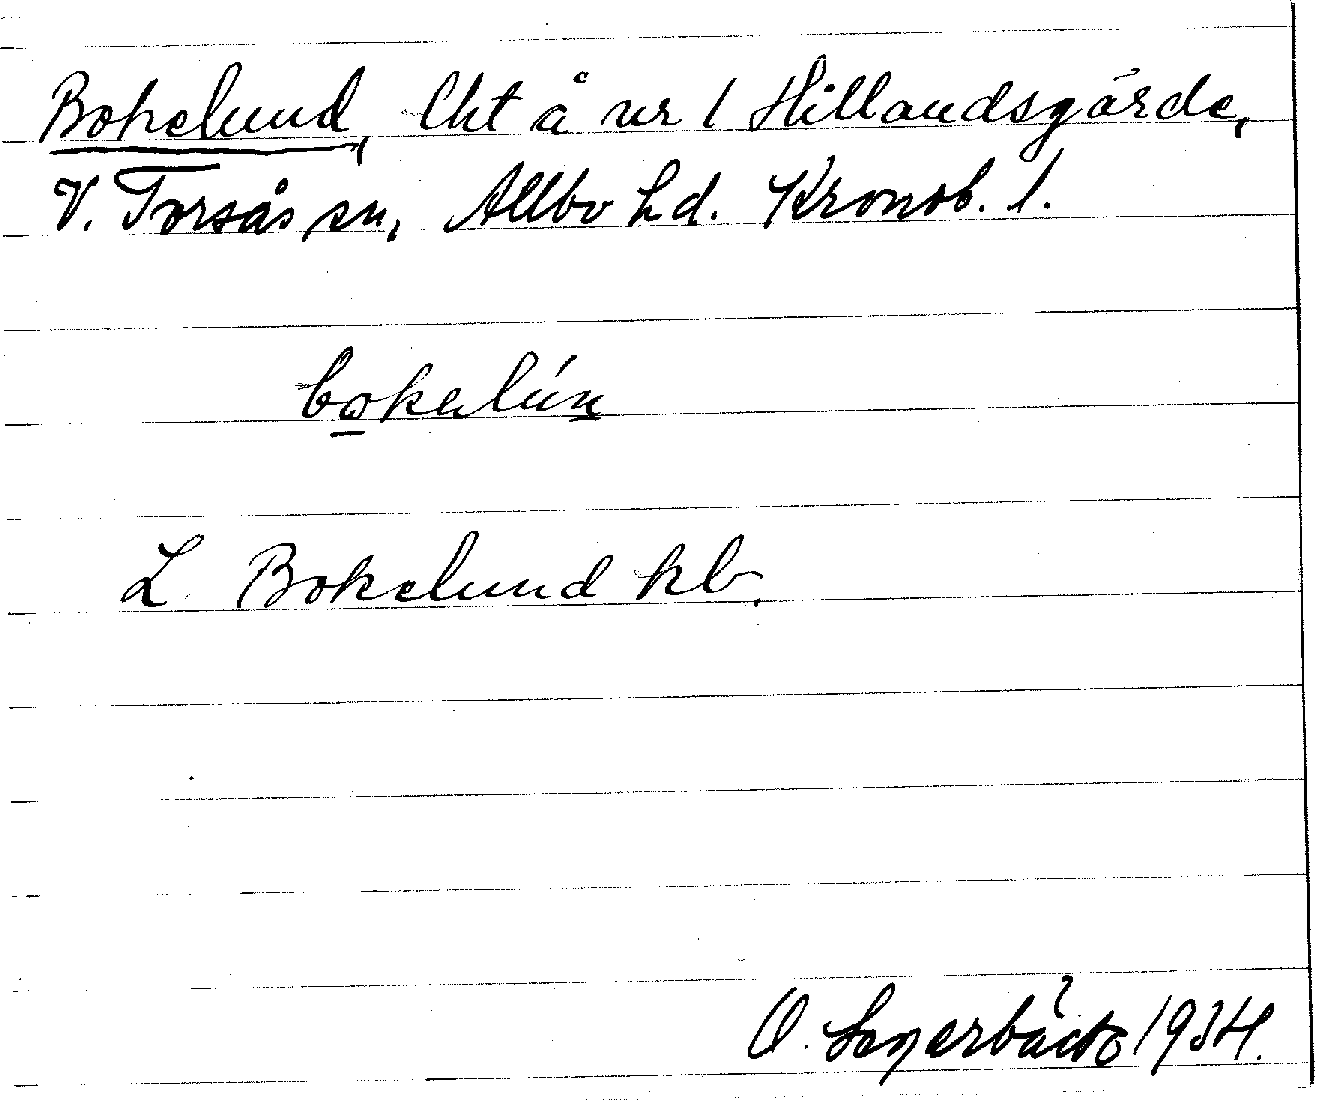 Bokelund, lht å nr 1 Hillandsgärde,
V. Torsås sn, Allbo hd. Kronob. l.
bokelún
L Bokelund kb.
O. Lagerbäck 1934.